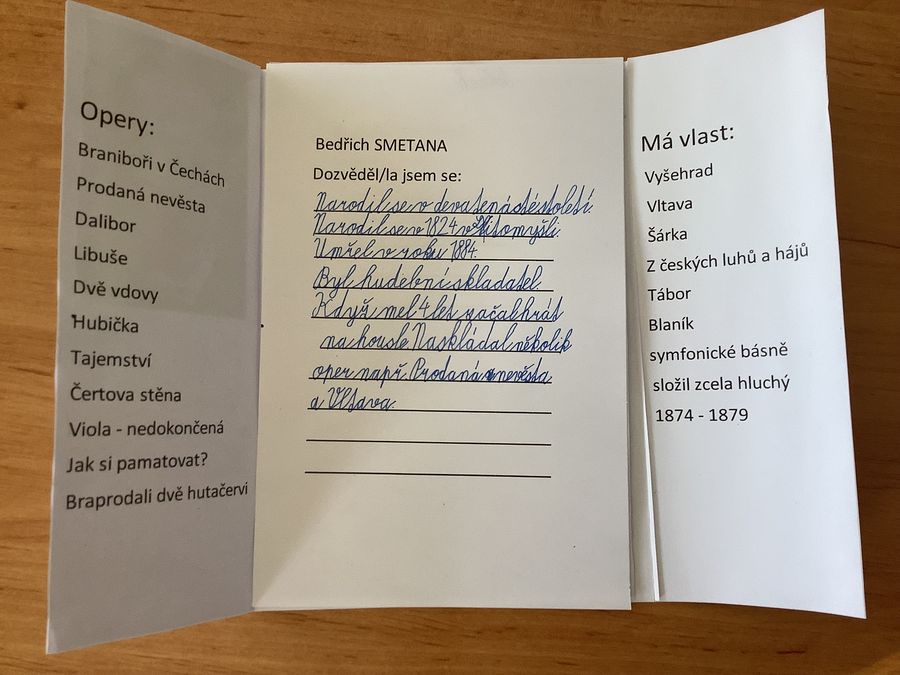 Opery:
Braniboři v Čechách
Prodaná nevěsta
Dalibor
Libuše
Dvě vdovy
Hubička
Tajemství
Čertova stěna
Viola - nedokončená
Jak si pamatovat?
Braprodali dvě hutačervi
Bedřich SMETANA
Dozvěděl/la jsem se:
Narodil se v devatenácté století.
Narodil se v 1824 v Litomyšli.
Umřel v roku 1884.
Byl hudební skladatel.
Když mel 4 let začal hrát
na housle Naskládal několik
oper např. Prodaná nevěsta
a Vltava.
Má vlast:
Vyšehrad
Vltava
Šárka
Z českých luhů a hájů
Tábor
Blaník
symfonické básně
složil zcela hluchý
1874 - 1879